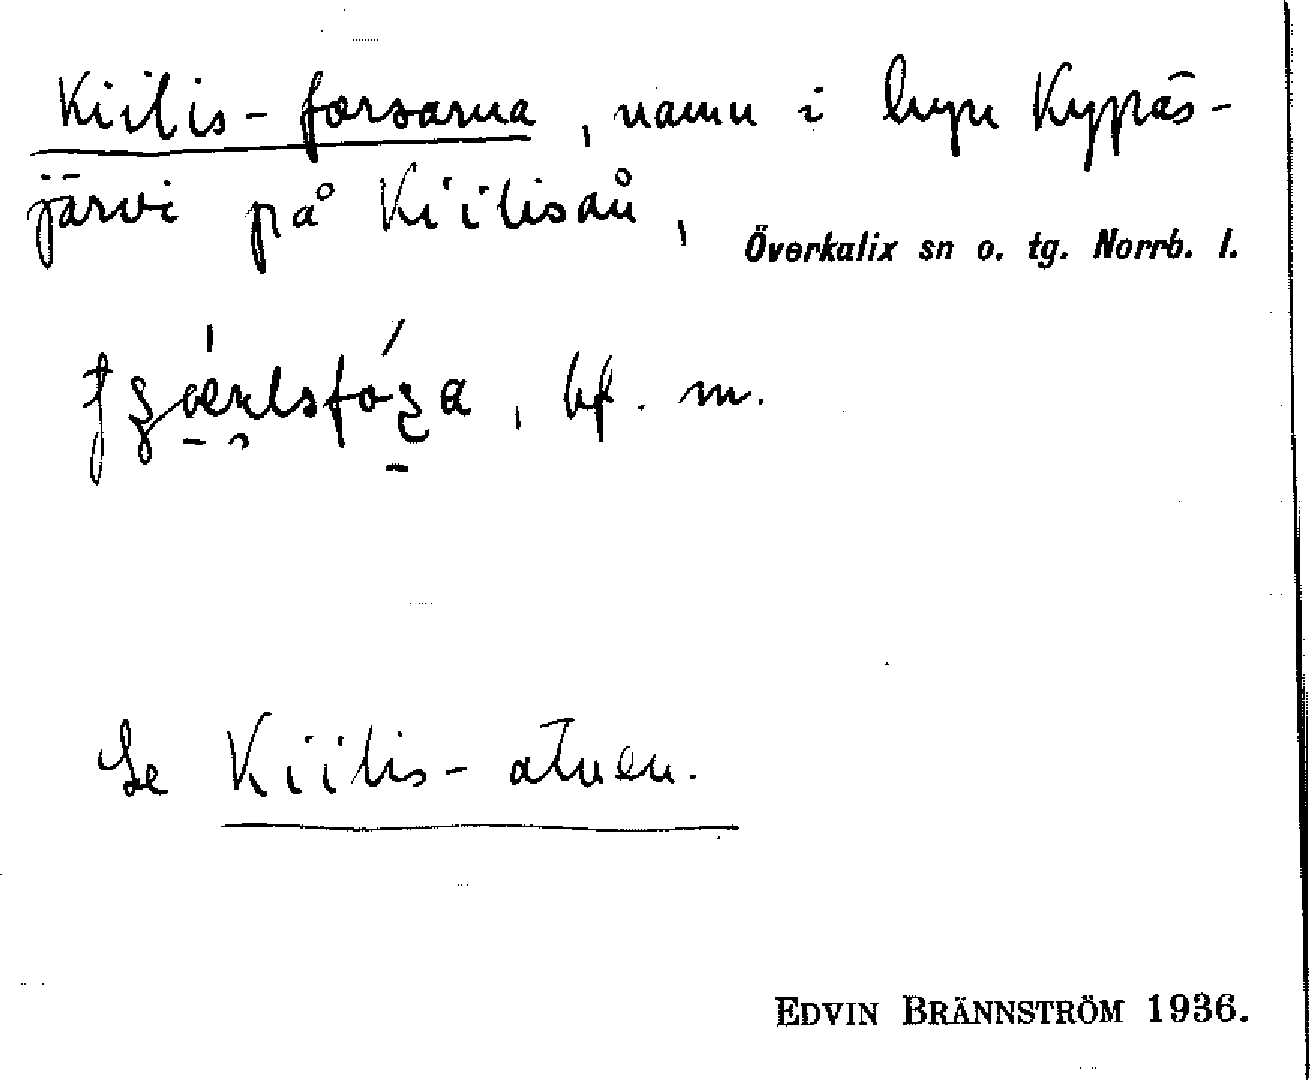 Kiilis-forsarna, namn i byn Kypäs-
järvi på Kiilisån,
Överkalix sn o. tg. Norrb. l.
, bf. m.
Se Kiilis-atnen.
EDVIN BRÄNNSTRÖM 1936.